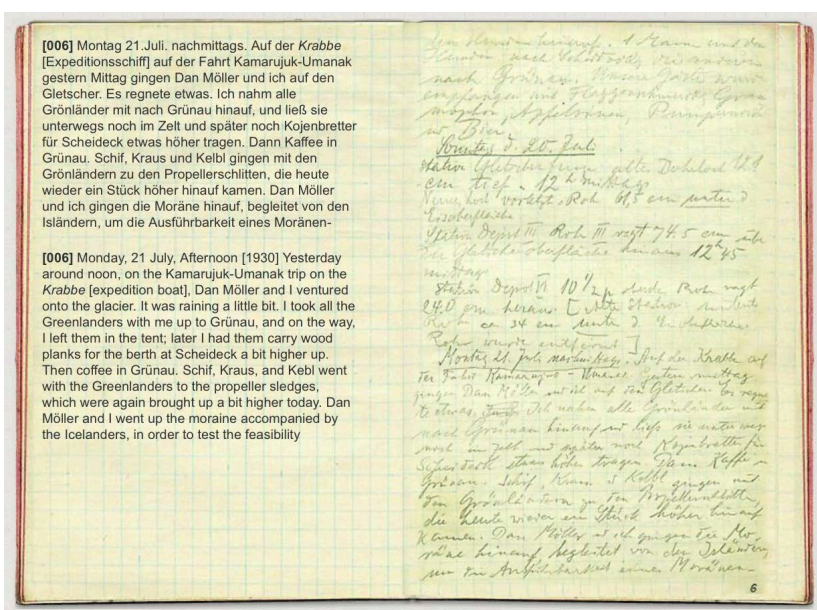 [006] Montag 21.Juli. nachmittags. Auf der Krabbe
[Expeditionsschiff] auf der Fahrt Kamarujuk-Umanak
gestern Mittag gingen Dan Möller und ich auf den
Gletscher. Es regnete etwas. Ich nahm alle
Grönländer mit nach Grünau hinauf, und ließ sie
unterwegs noch im Zelt und später noch Kojenbretter
für Scheideck etwas höher tragen. Dann Kaffee in
Grünau. Schif, Kraus und Kelbl gingen mit den
Grönländern zu den Propellerschlitten, die heute
wieder ein Stück höher hinauf kamen. Dan Möller
und ich gingen die Moräne hinauf, begleitet von den
Isländern, um die Ausführbarkeit eines Moränen-
[006] Monday, 21 July, Afternoon [1930] Yesterday
around noon, on the Kamarujuk-Umanak trip on the
Krabbe [expedition boat], Dan Möller and I ventured
onto the glacier. It was raining a little bit. I took all the
Greenlanders with me up to Grünau, and on the way,
I left them in the tent; later I had them carry wood
planks for the berth at Scheideck a bit higher up.
Then coffee in Grünau. Schif, Kraus, and Kebl went
with the Greenlanders to the propeller sledges,
which were again brought up a bit higher today. Dan
Möller and I went up the moraine accompanied by
the Icelanders, in order to test the feasibility
den Hunden hinauf. 1 Mann und
Hunden nach Scheideck, die anderen
nach Grünau. Unsere Gäste
empfangen mit Flaggenschmuck, Gram
mophon, Apfelsinen,
u. Bier.
Sonntag d. 20. Juli
altes Bohrloch
cm tief. 12 h mittags
Rohr 61,5 cm unter d
Eisoberfläche
Station Depot III Rohr III ragt 74.5 cm über
die Gletscheroberfläche hinaus 12 h 45
mittag
Station Depot II 10 1/2 Rohr ragt
24.0 cm heraus. [alte Station:
Rohr ca 34 cm unter d. Eisoberfläche
Rohr wurde entfernt]
Montag 21. Juli nachmittags. Auf der Krabbe auf
der Fahrt Kamarujuk - Umanak Gestern mittag
gingen Dan Möller und ich auf den Gletscher. Es regne
te etwas. Ich nahm alle Grönländer mit
nach Grünau hinauf und ließ sie unterwegs
noch im Zelt und später noch Kojenbretter für
Scheideck etwas höher tragen. Dann Kaffee in
Grünau. Schif, Kraus u Kelbl gingen mit
den Grönländern zu den Propellerschlitten,
die heute wieder ein Stück höher hinauf
kamen. Dan Möller u ich gingen die Mo-
räne hinauf, begleitet von den Isländern,
um die Ausführbarkeit eines Moränen-
6